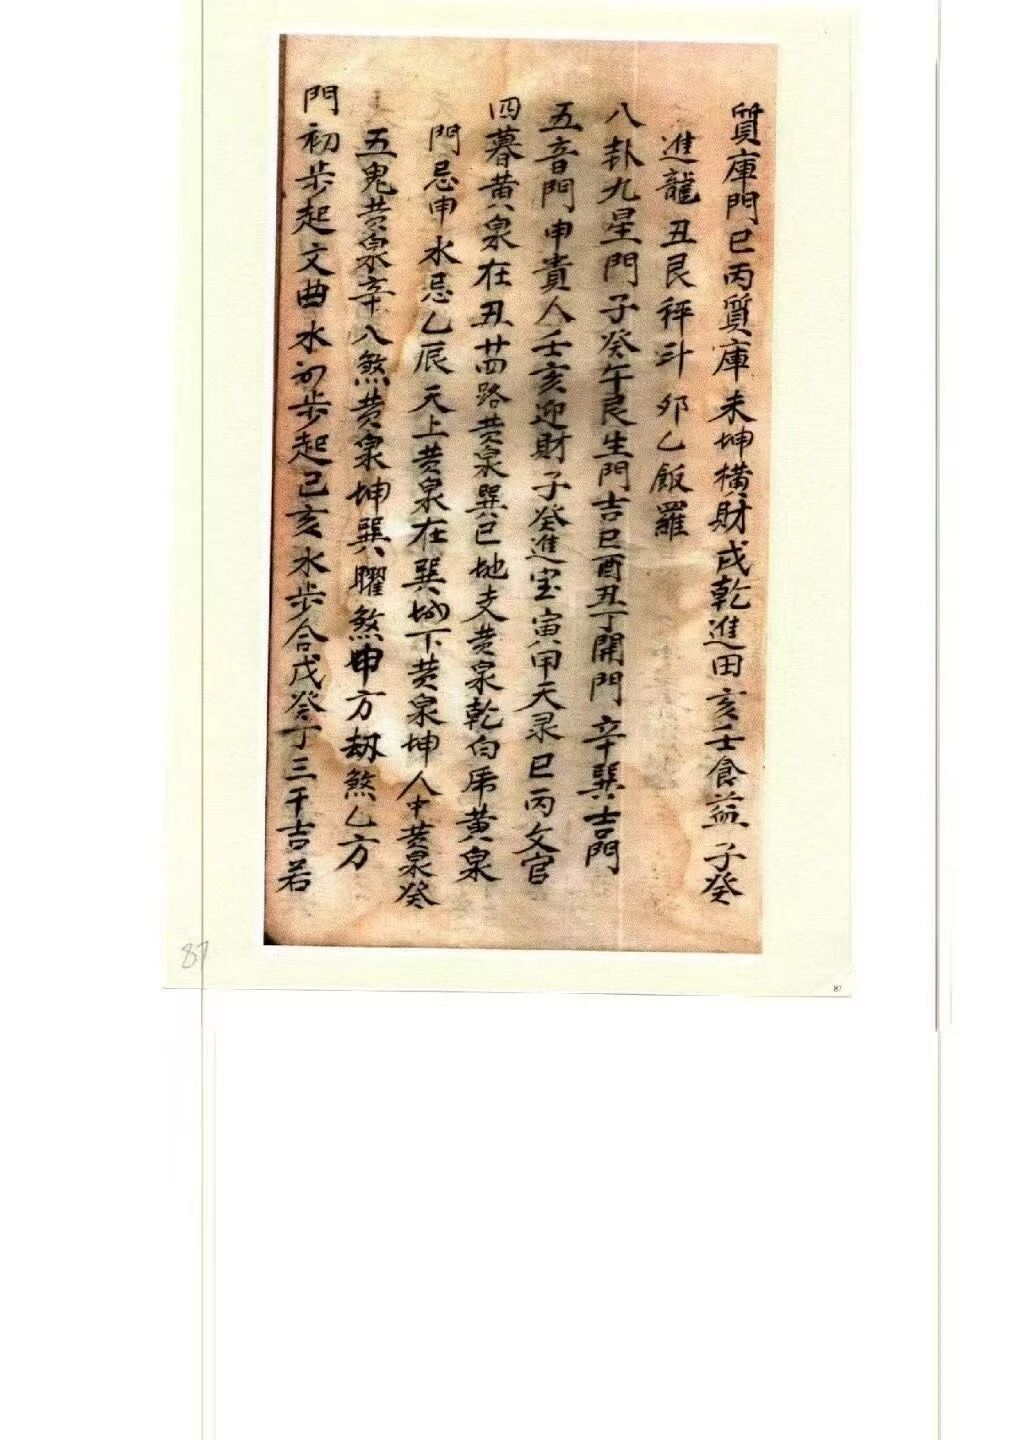 質庫門巳丙質庫未坤橫財戌乾進田亥壬食益子癸
進龍丑艮秤斗夘乙飯羅
八卦九星門子癸午艮生門吉巳酉丑丁開門辛巽吉門
五音門申貴人壬亥迎財子癸進宝寅甲天录巳丙文官
四暮黄泉在丑廿四路黄泉巽巳地支黄泉乾白虎黄泉
門忌申水忌乙辰天上黄泉在巽坳下黄泉坤人中黄泉癸
五鬼黄泉辛八煞黄泉坤巽曜煞申方刼煞乙方
門初步起文曲水初步起己亥水步合戊癸丁三干吉若
87
87